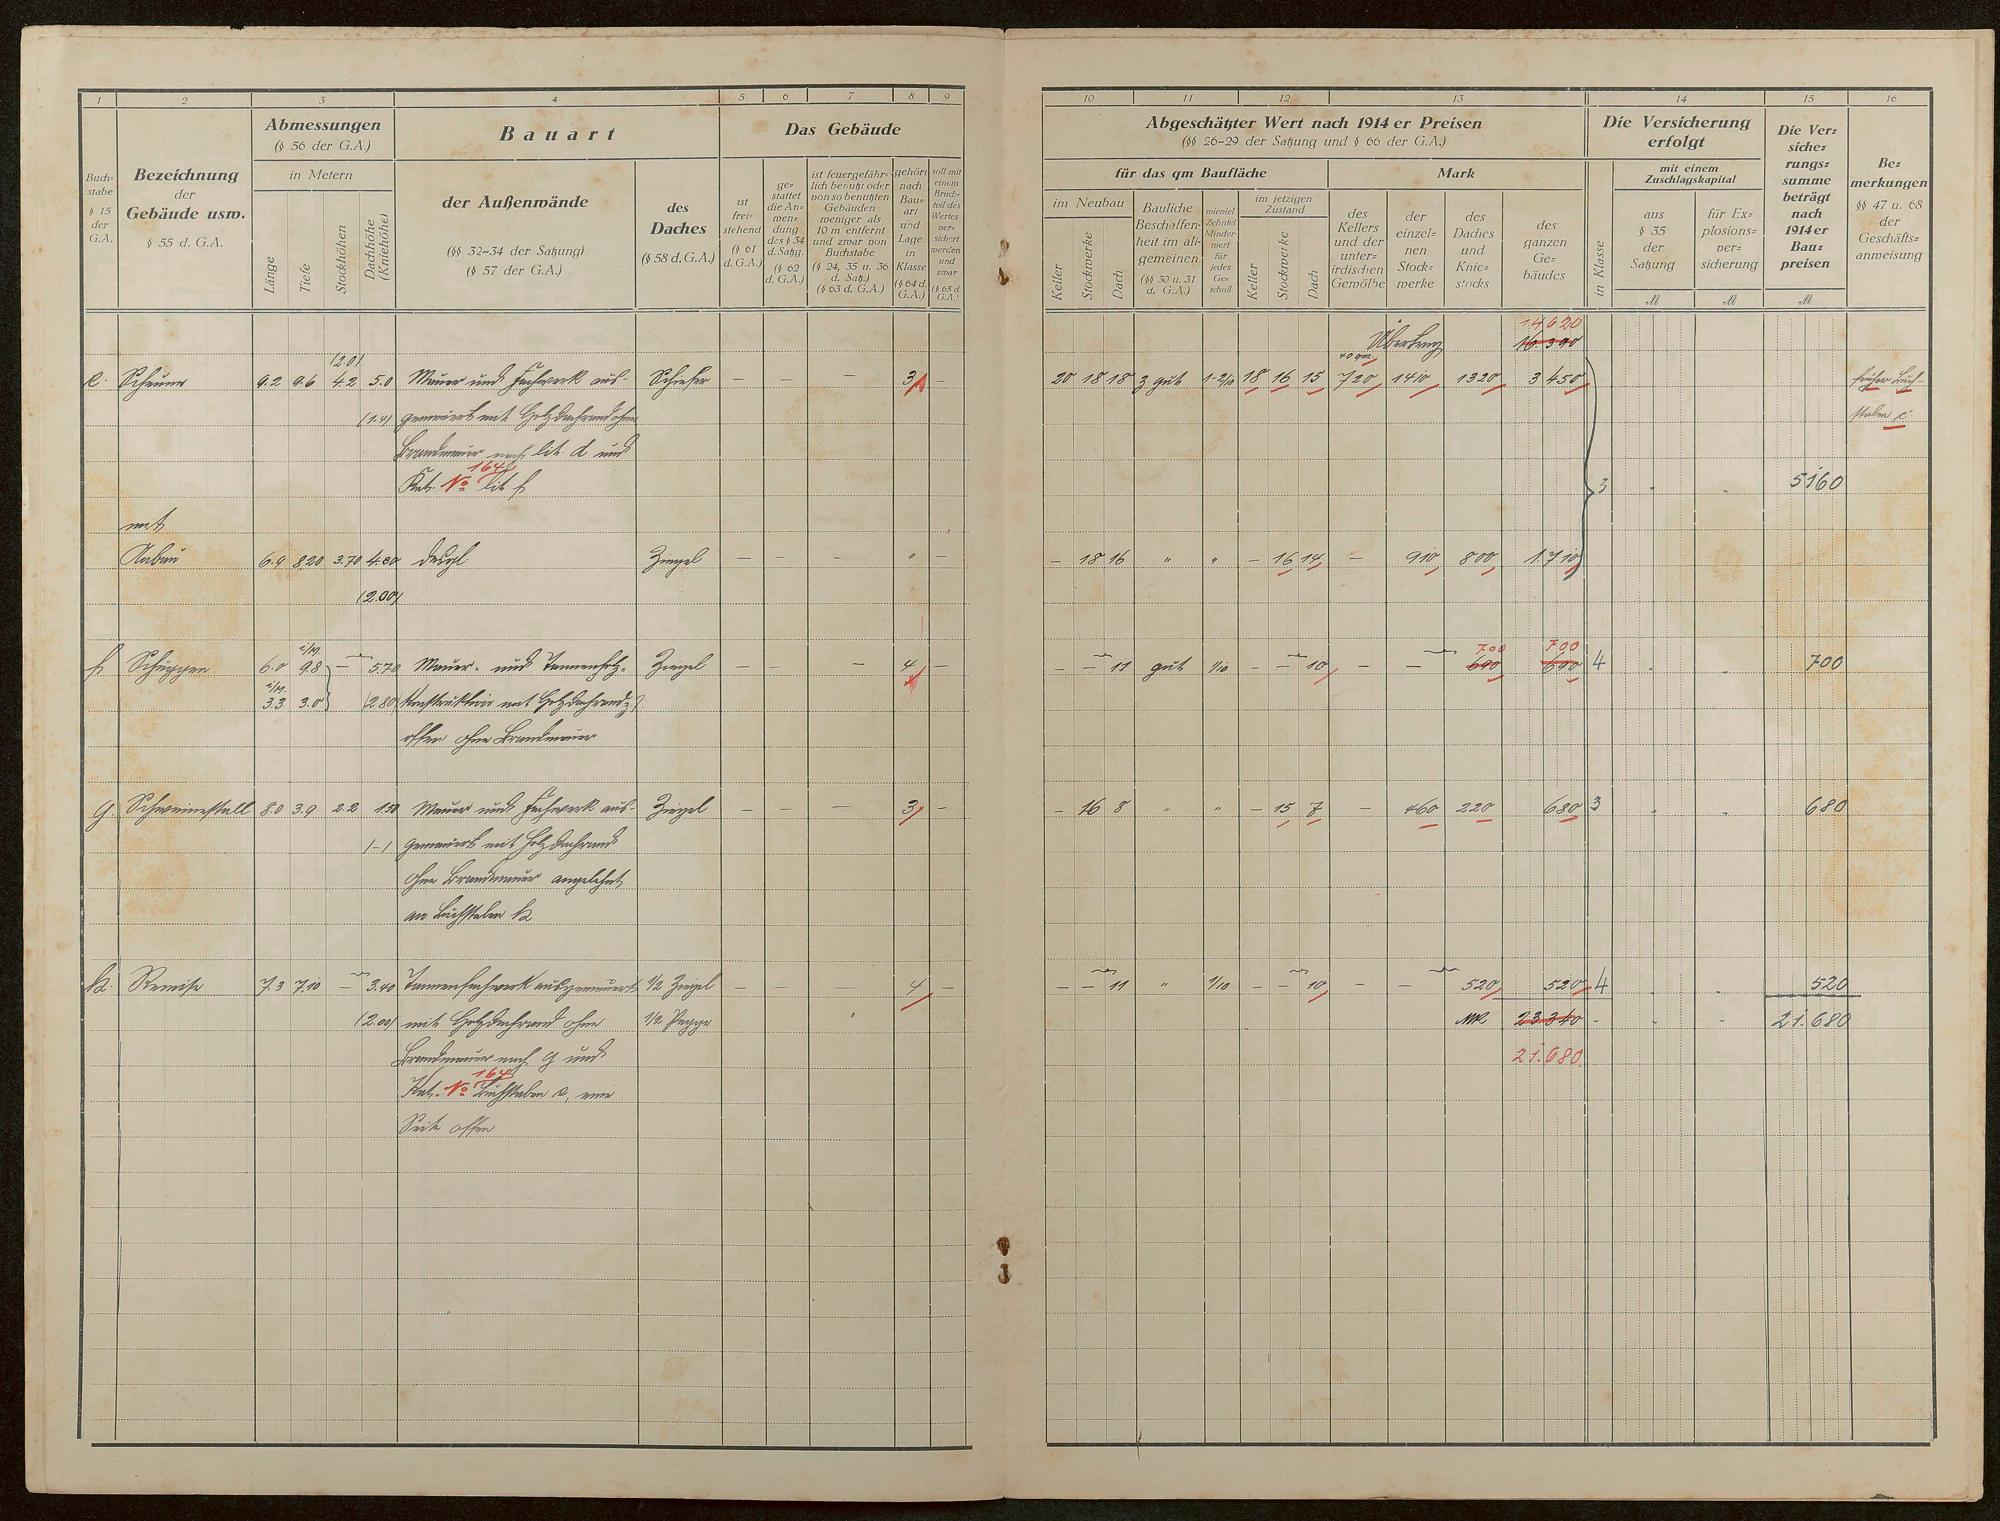 1 2 3 4 5 6 7 8 9
Buch=
stabe
§ 15
der
G.A.
Bezeichnung
der
Gebäude usw.
§ 55 d. G.A.
Abmessungen
(§ 56 der G.A.)
in Metern
Länge
Tiefe
Stockhöhen
Dachhöhe
(Kniehöhe)
Bauart
der Außenwände
(§§ 32-34 der Satzung)
(§ 57 der G.A.)
des
Daches
(§ 58 d. G.A.)
Das Gebäude
ist
frei=
stehend
(§ 61
d. G.A.)
ge=
stattet
die An=
wen=
dung
des § 34
d. Satzg.
(§ 62
d. G.A.)
ist feuergefähr=
lich benutzt oder
von so benutzten
Gebäuden
weniger als
10 m entfernt
und zwar von
Buchstabe
(§ 24, 35 u. 36
d. Satz.)
(§ 63 d. G.A.)
gehört
nach
Bau=
art
und
Lage
in
Klasse
(§ 64 d.
G.A.)
soll mit
einem
Bruch=
teil des
Wertes
ver=
sichert
werden
und
zwar
(§ 65 d.
G.A.)
(2.0)
e. Scheune 9.2 9.6 4.2 5.0 Mauer und Fachwerk aus- Schiefer — — — 3 —
(1.4) gemauert mit Holzdachrand ohne
Brandmauer nach lit. d und
Kat. No 164 lit. f
mit
Anbau 6.9 8.20 3.70 4.80 desgl Ziegel — — — " —
(2.00)
f Schuppen 6.0 i/M. 9.8 — 5.70 Mauer- und Tannenholz- Ziegel — — — 4 —
i/M. 3.3 3.0 (2.80) Konstruktion mit Holzdachrand
offen ohne Brandmauer
g. Schweinestall 8.0 3.9 2.2 1.50 Mauer und Fachwerk aus- Ziegel — — — 3 —
(-) gemauert mit Holzdachrand
ohne Brandmauer angelehnt
an Buchstaben h
h. Remise 7.3 7.10 — 3.40 Tannenfachwerk ausgemauert 1/2 Ziegel — — — 4 —
(2.00) mit Holzdachrand ohne 1/2 Pappe
Brandmauer nach g und
Kat. No 164 Buchstaben e, eine
Seite offen
10 11 12 13 14 15 16
Abgeschätzter Wert nach 1914 er Preisen
(§§ 26-29 der Satzung und § 66 der G.A.)
für das qm Baufläche
im Neubau
Keller
Stockwerke
Dach
Bauliche
Beschaffen=
heit im all=
gemeinen
(§§ 30 u. 31
d. G.A.)
wieviel
Zehntel
Minder=
wert
für
jedes
Ge=
schoß
im jetzigen
Zustand
Keller
Stockwerke
Dach
Mark
des
Kellers
und der
unter=
irdischen
Gewölbe
der
einzel=
nen
Stock=
werke
des
Daches
und
Knie=
stocks
des
ganzen
Ge=
bäudes
Die Versicherung
erfolgt
in Klasse
mit einem
Zuschlagskapital
aus
§ 35
der
Satzung
für Ex=
plosions=
ver=
sicherung
Die Ver=
siche=
rungs=
summe
beträgt
nach
1914 er
Bau=
preisen
Be=
merkungen
§§ 47 u. 68
der
Geschäfts=
anweisung
M M M
14620
Übertrag 16.390
40 qm
20 18 18 3 gut 1-2/10 18 16 15 720 1410 1320 3450 früher Buch-
staben c
3 5160
— 18 16 " " — 16 14 — 910 800 1.710
700 700
— — 11 gut 1/10 — — 10 — — 690 690 4 700
— 16 8 " " — 15 7 — 460 220 680 3 680
— — 11 " 1/10 — — 10 — — 520 520 4 520
MK 23.340 21.680
21.680